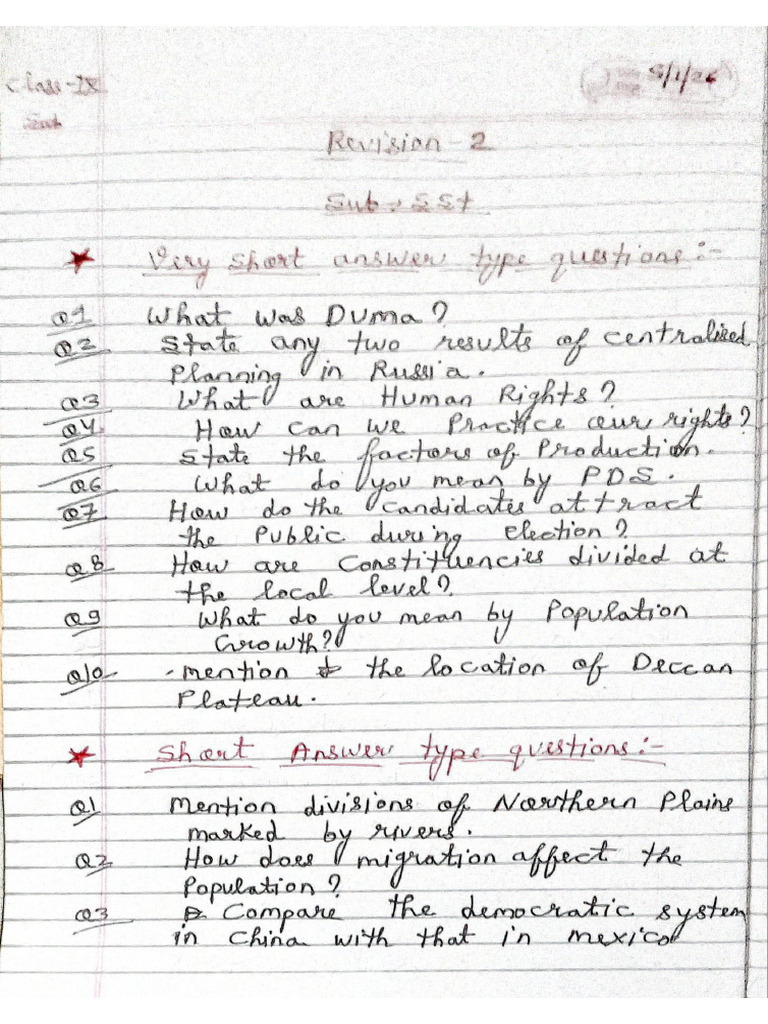 Class-IX
5/1/26
Sub
Revision-2
Sub:- SSt
★ Very Short answer type questions:-
Q1 What was Duma?
Q2 State any two results of centralized
Planning in Russia.
Q3 What are Human Rights?
Q4 How can we Practice our rights?
Q5 State the factors of Production.
Q6 What do you mean by PDS.
Q7 How do the candidates attract
the Public during election?
Q8 How are Constituencies divided at
the local level?
Q9 What do you mean by Population
Growth?
Q10 -mention the location of Deccan
Plateau.
★ Short Answer type questions:-
Q1 Mention divisions of Northern Plains
marked by rivers.
Q2 How does migration affect the
Population?
Q3 Compare the democratic system
in China with that in mexico